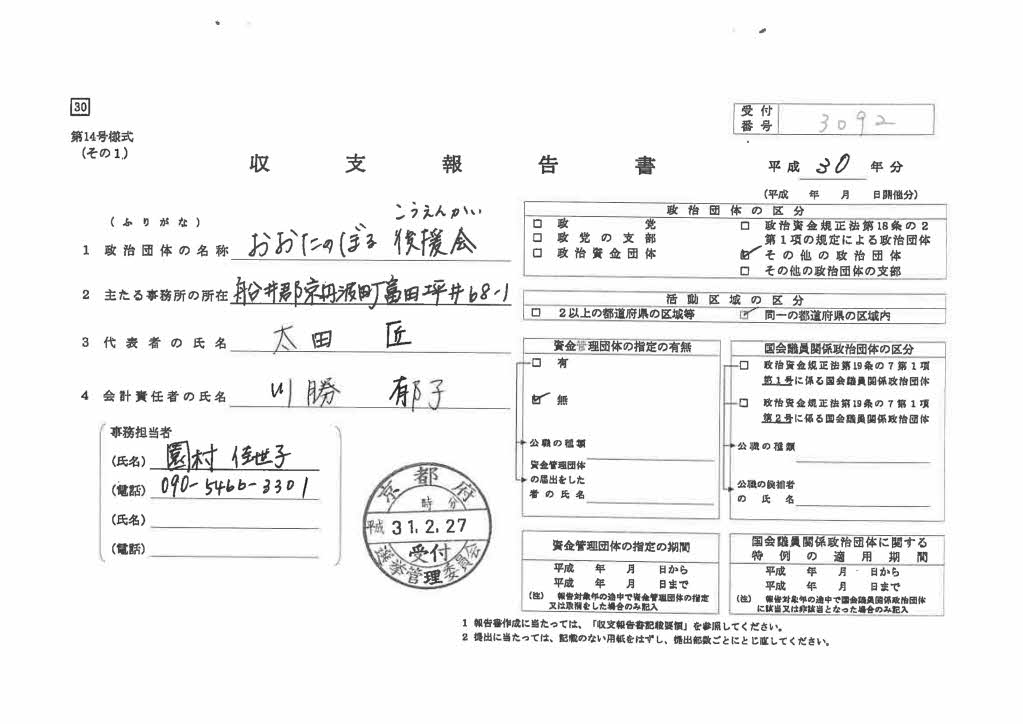 30
第14号様式
(その1)
受付番号 3092
収支報告書
平成 30 年分
(平成 年 月 日開催分)
(ふりがな) こうえんかい
1 政治団体の名称 おおたにのぼる 後援会
2 主たる事務所の所在 船井郡京丹波町富田坪井68-1
3 代表者の氏名 太田 匠
4 会計責任者の氏名 川勝 郁子
事務担当者
(氏名) 園村 佳世子
(電話) 090-5466-3301
(氏名)
(電話)
京都府
時 分
平成 31.2.27
受付
選挙管理委員会
政治団体の区分
□ 政党
□ 政党の支部
□ 政治資金団体
□ 政治資金規正法第18条の2
第1項の規定による政治団体
☑ その他の政治団体
□ その他の政治団体の支部
活動区域の区分
□ 2以上の都道府県の区域等
☑ 同一の都道府県の区域内
資金管理団体の指定の有無
□ 有
☑ 無
公職の種類
資金管理団体
の届出をした
者の氏名
国会議員関係政治団体の区分
□ 政治資金規正法第19条の7第1項
第1号に係る国会議員関係政治団体
□ 政治資金規正法第19条の7第1項
第2号に係る国会議員関係政治団体
公職の種類
公職の候補者
の氏名
資金管理団体の指定の期間
平成 年 月 日から
平成 年 月 日まで
(注) 報告対象年の途中で資金管理団体の指定
又は取消をした場合のみ記入
国会議員関係政治団体に関する
特例の適用期間
平成 年 月 日から
平成 年 月 日まで
(注) 報告対象年の途中で国会議員関係政治団体
に該当又は非該当となった場合のみ記入
1 報告書作成に当たっては、「収支報告書記載要領」を参照してください。
2 提出に当たっては、記載のない用紙をはずし、提出部数ごとにとじ直してください。